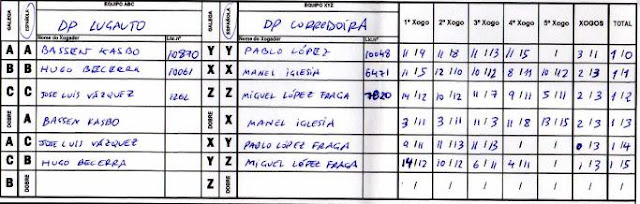 GALEGA ESPAÑOLA EQUIPO ABC EQUIPO XYZ 1º Xogo 2º Xogo 3º Xogo 4º Xogo 5º Xogo XOGOS TOTAL
DP LUGAUTO DP CORREDOIRA
Nome do Xogador Lic.nº Nome do Xogador Lic.nº
A A BASSEN KASBO 10870 Y Y PABLO LÓPEZ 10048 11/9 11/8 11/13 11/5 / 3/1 1/0
B B HUGO BECERRA 10061 X X MANEL IGLESIA 6471 11/5 12/10 10/12 8/11 10/12 2/3 1/1
C C JOSE LUIS VÁZQUEZ 1262 Z Z MIGUEL LÓPEZ FRAGA 7820 14/12 10/12 11/7 9/11 5/11 2/3 1/2
DOBRE A BASSEN KASBO DOBRE X MANEL IGLESIA 3/11 3/11 11/3 11/8 13/15 2/3 1/3
A C JOSE LUIS VÁZQUEZ X Y PABLO LÓPEZ FRAGA 9/11 11/13 11/13 / / 0/3 1/4
C B HUGO BECERRA Y Z MIGUEL LÓPEZ FRAGA 14/12 10/12 6/11 4/11 / 1/3 1/5
B DOBRE Z DOBRE / / / / / / /